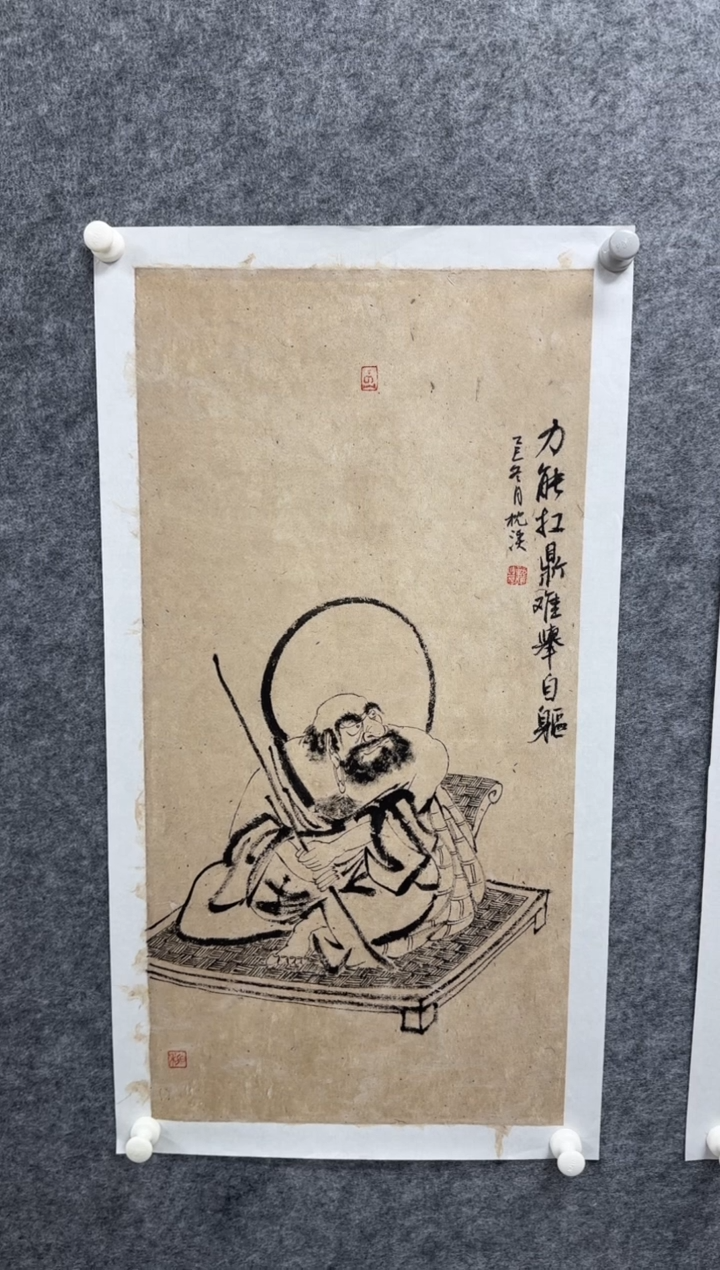 力能扛鼎难举自躯
乙巳冬月枕溪